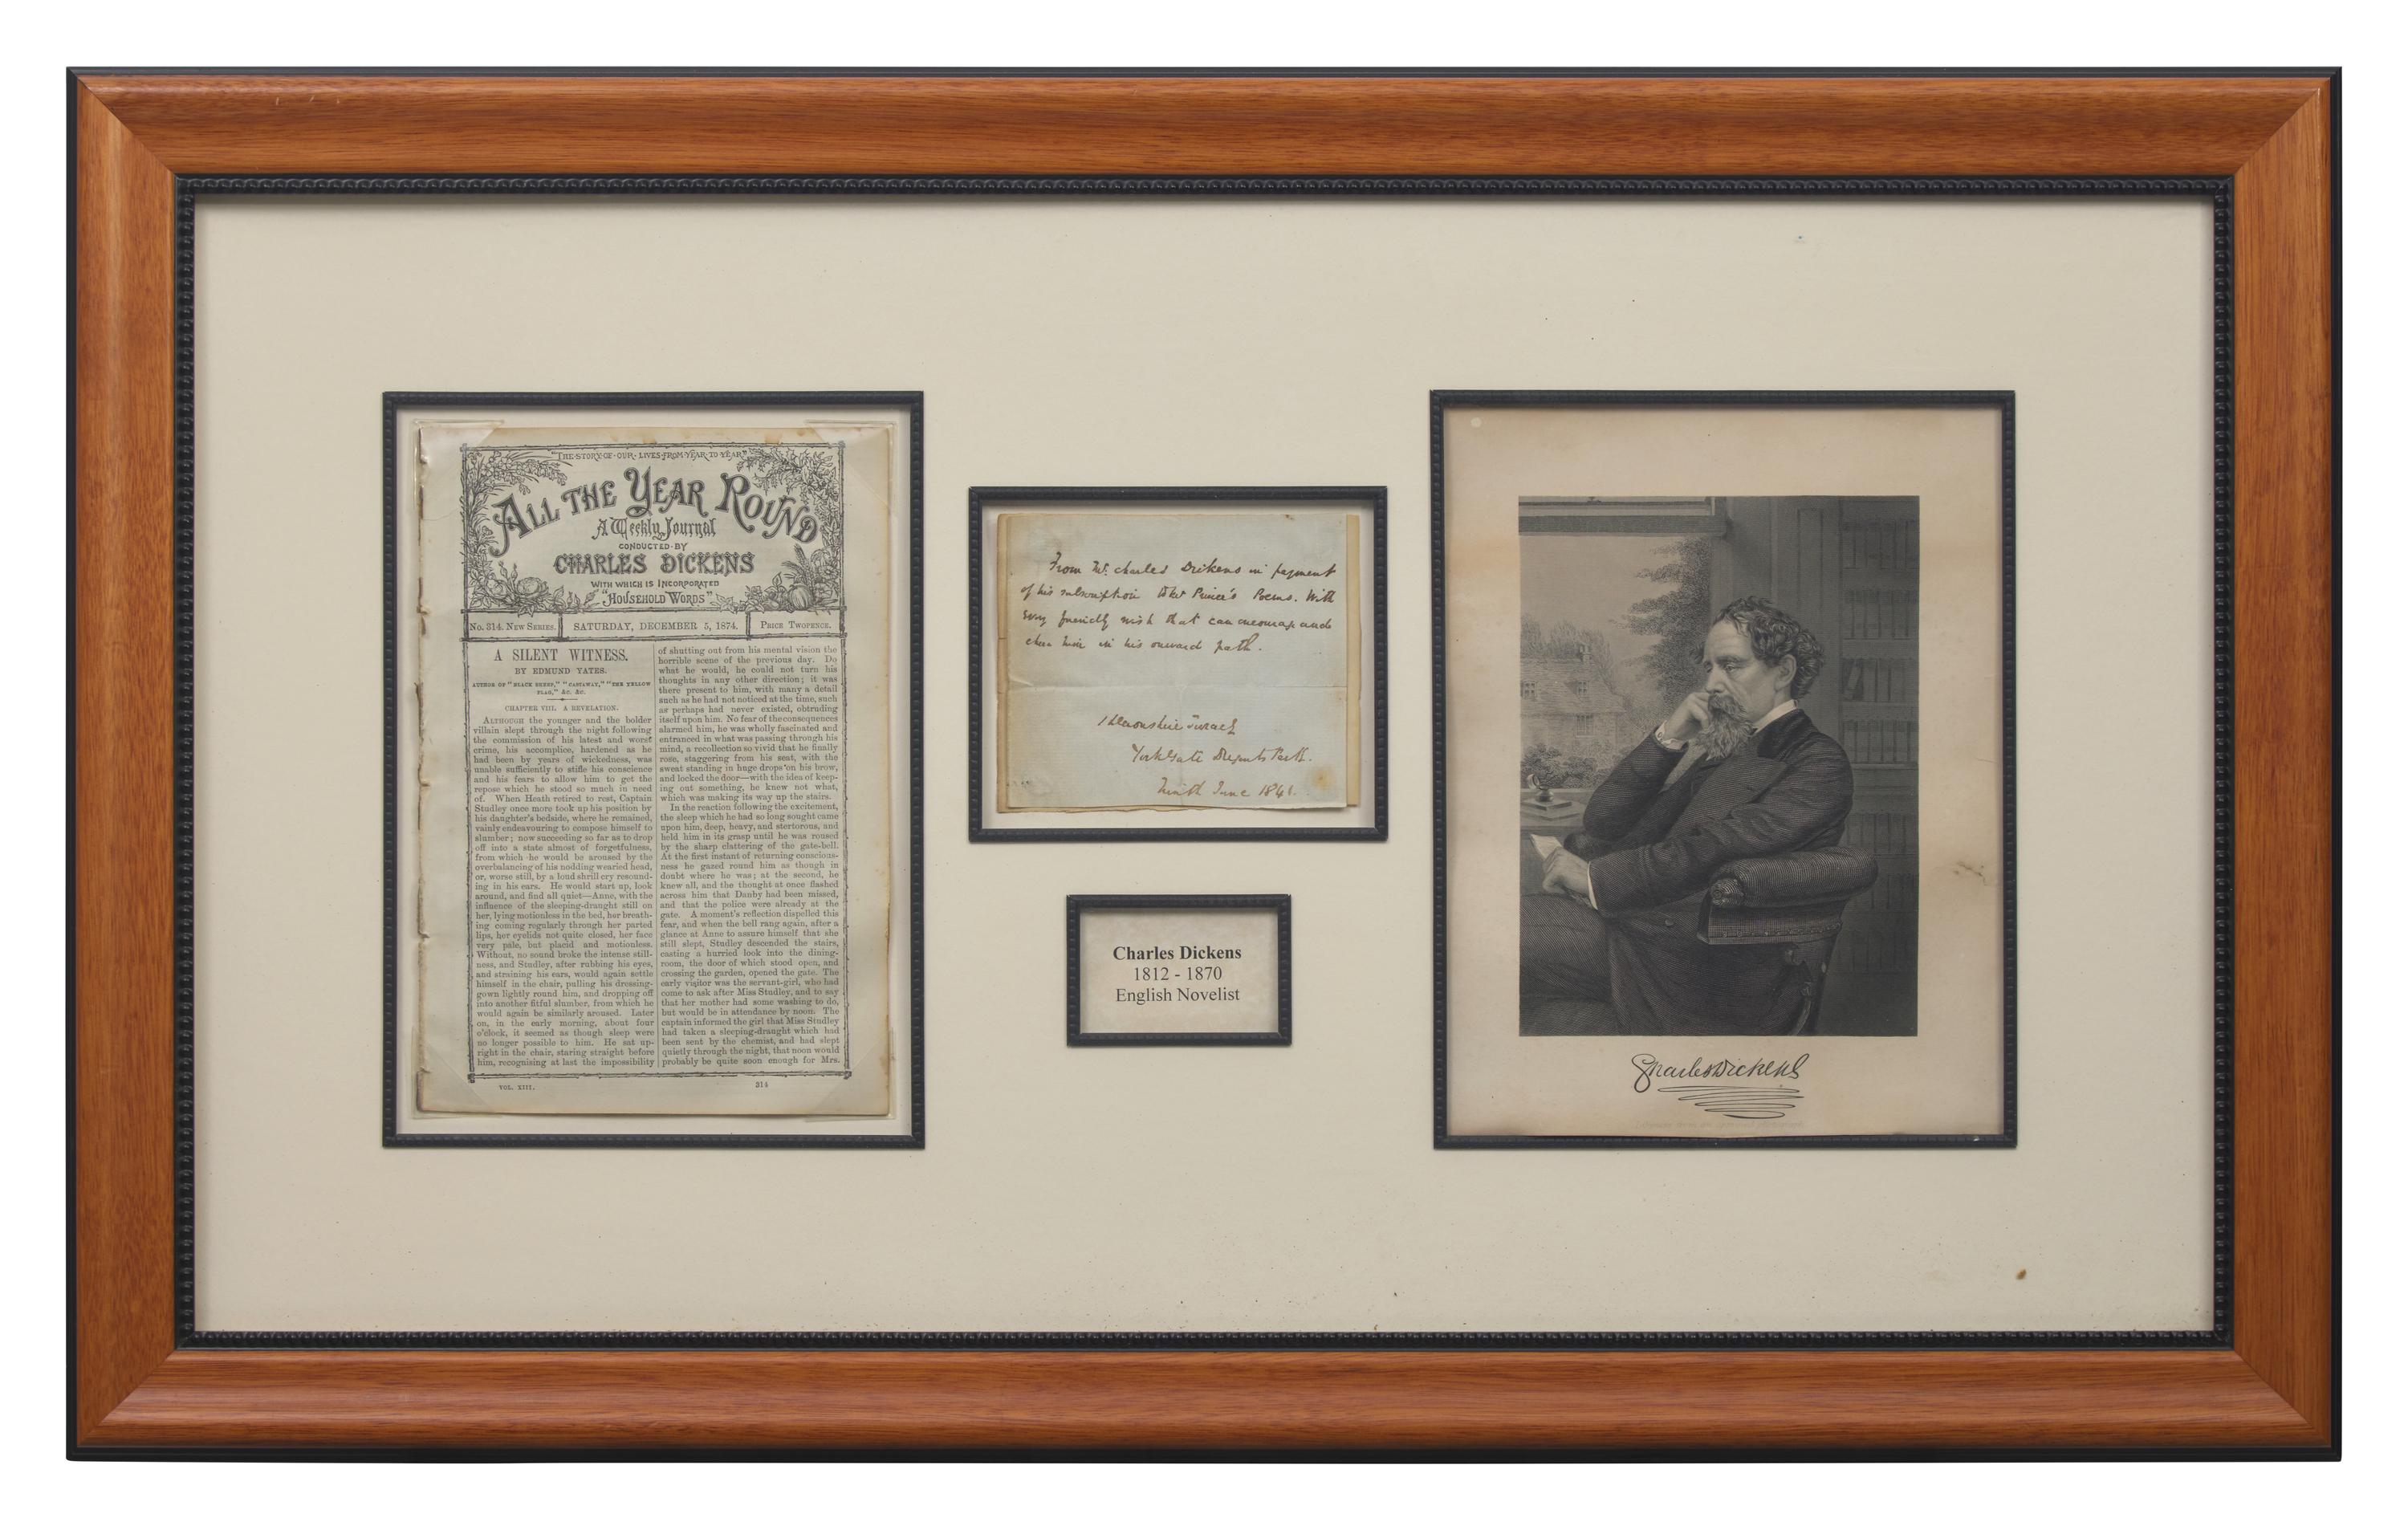 "THE·STORY·OF·OUR·LIVES·FROM·YEAR·TO·YEAR"
ALL THE YEAR ROUND
A Weekly Journal
CONDUCTED·BY
CHARLES DICKENS
WITH WHICH IS INCORPORATED
"HOUSEHOLD WORDS"
No. 314. NEW SERIES. SATURDAY, DECEMBER 5, 1874. PRICE TWOPENCE.
A SILENT WITNESS.
BY EDMUND YATES.
AUTHOR OF "BLACK SHEEP," "CASTAWAY," "THE YELLOW
FLAG," &c. &c.
CHAPTER VIII. A REVELATION.
ALTHOUGH the younger and the bolder
villain slept through the night following
the commission of his latest and worst
crime, his accomplice, hardened as he
had been by years of wickedness, was
unable sufficiently to stifle his conscience
and his fears to allow him to get the
repose which he stood so much in need
of. When Heath retired to rest, Captain
Studley once more took up his position by
his daughter's bedside, where he remained,
vainly endeavouring to compose himself to
slumber; now succeeding so far as to drop
off into a state almost of forgetfulness,
from which he would be aroused by the
overbalancing of his nodding wearied head,
or, worse still, by a loud shrill cry resound-
ing in his ears. He would start up, look
around, and find all quiet—Anne, with the
influence of the sleeping-draught still on
her, lying motionless in the bed, her breath-
ing coming regularly through her parted
lips, her eyelids not quite closed, her face
very pale, but placid and motionless.
Without, no sound broke the intense still-
ness, and Studley, after rubbing his eyes,
and straining his ears, would again settle
himself in the chair, pulling his dressing-
gown lightly round him, and dropping off
into another fitful slumber, from which he
would again be similarly aroused. Later
on, in the early morning, about four
o'clock, it seemed as though sleep were
no longer possible to him. He sat up-
right in the chair, staring straight before
him, recognising at last the impossibility
of shutting out from his mental vision the
horrible scene of the previous day. Do
what he would, he could not turn his
thoughts in any other direction; it was
there present to him, with many a detail
such as he had not noticed at the time, such
as perhaps had never existed, obtruding
itself upon him. No fear of the consequences
alarmed him, he was wholly fascinated and
entranced in what was passing through his
mind, a recollection so vivid that he finally
rose, staggering from his seat, with the
sweat standing in huge drops on his brow,
and locked the door—with the idea of keep-
ing out something, he knew not what,
which was making its way up the stairs.
In the reaction following the excitement,
the sleep which he had so long sought came
upon him, deep, heavy, and stertorous, and
held him in its grasp until he was roused
by the sharp clattering of the gate-bell.
At the first instant of returning conscious-
ness he gazed round him as though in
doubt where he was; at the second, he
knew all, and the thought at once flashed
across him that Danby had been missed,
and that the police were already at the
gate. A moment's reflection dispelled this
fear, and when the bell rang again, after a
glance at Anne to assure himself that she
still slept, Studley descended the stairs,
casting a hurried look into the dining-
room, the door of which stood open, and
crossing the garden, opened the gate. The
early visitor was the servant-girl, who had
come to ask after Miss Studley, and to say
that her mother had some washing to do,
but would be in attendance by noon. The
captain informed the girl that Miss Studley
had taken a sleeping-draught which had
been sent by the chemist, and had slept
quietly through the night, that noon would
probably be quite soon enough for Mrs.
VOL. XIII. 314
From Mr. Charles Dickens in payment
of his subscription to Mr Prince's Poems. With
every friendly wish that can encourage and
cheer him in his onward path.
1 Devonshire Terrace
York Gate Regents Park.
Ninth June 1841.
Charles Dickens
1812 - 1870
English Novelist
Charles Dickens